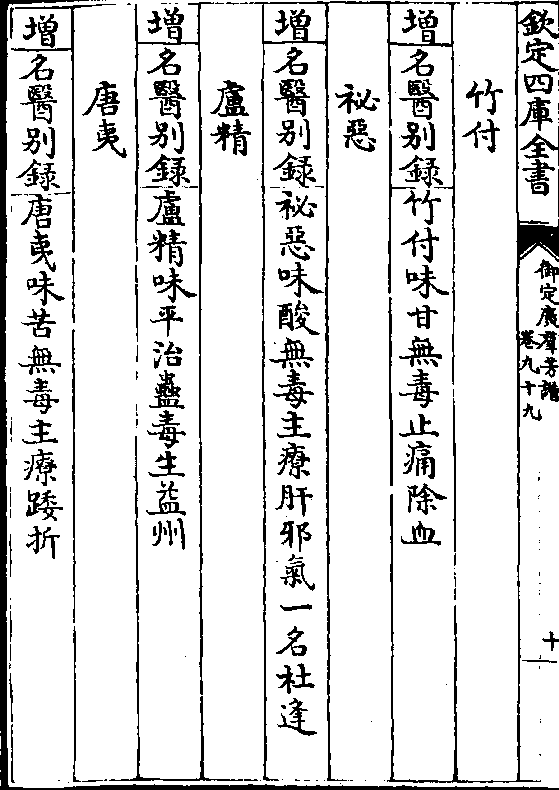 欽定四庫全書
御定廣羣芳譜
卷九十九
十
竹付
增名醫别錄竹付味甘無毒止痛除血
祕惡
增名醫别錄祕惡味酸無毒主療肝邪氣一名杜逢
盧精
增名醫别錄盧精味平治蠱毒生益州
唐夷
增名醫别錄唐夷味苦無毒主療踒折